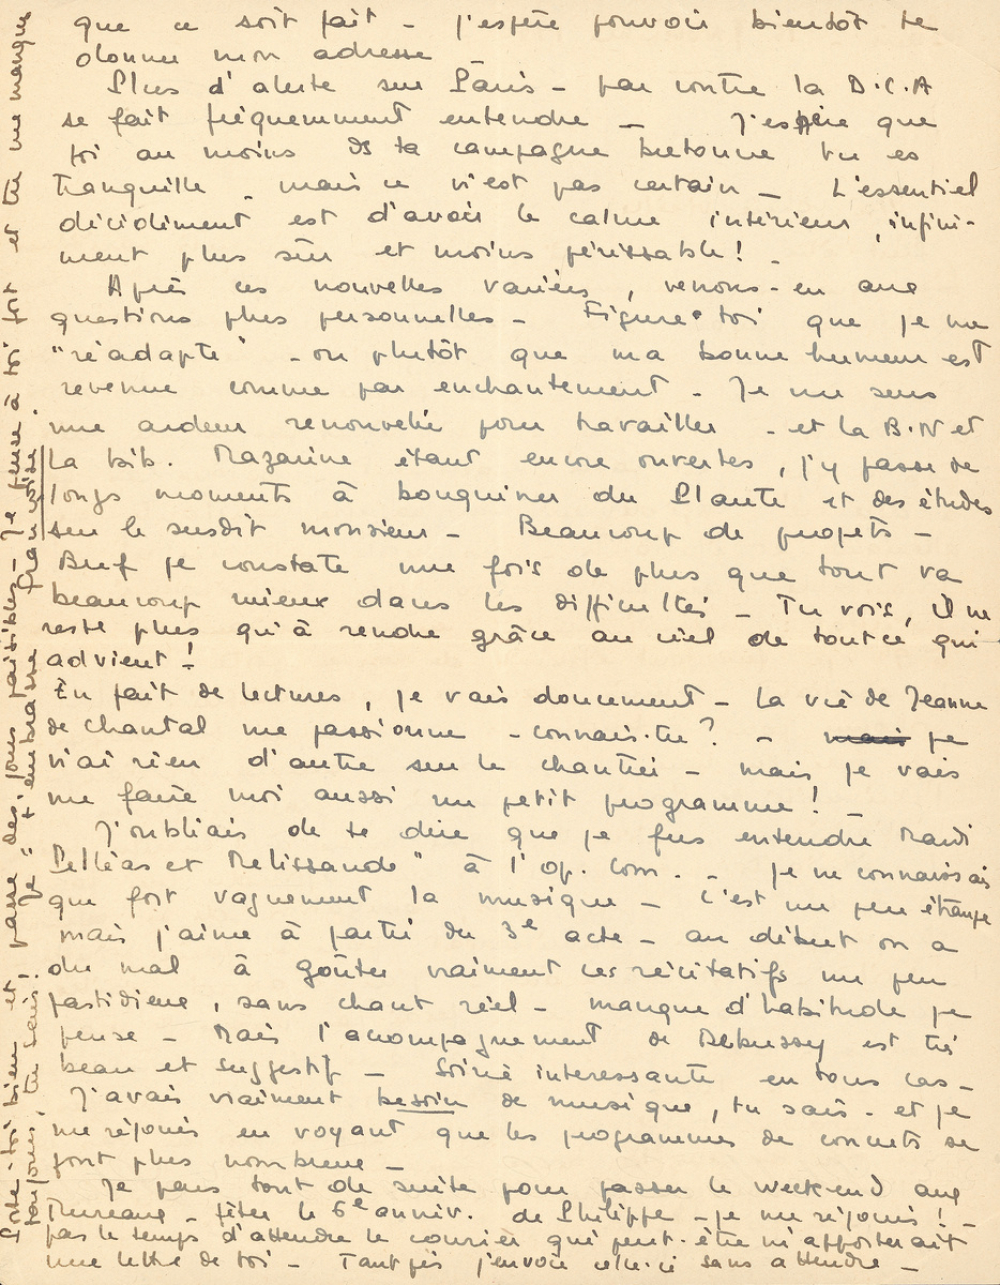 que ce soit fait - j'espère pouvoir bientôt te
donner mon adresse
Plus d'alerte sur Paris - par contre la D.C.A
se fait fréquemment entendre - J'espère que
toi au moins ds ta campagne bretonne tu es
tranquille - mais ce n'est pas certain - L'essentiel
décidément est d'avoir le calme intérieur, infini-
ment plus sûr et moins périssable! -
Après ces nouvelles variées, venons-en aux
questions plus personnelles - Figure-toi que je me
"réadapte" - ou plutôt que ma bonne humeur est
revenue comme par enchantement - Je me sens
une ardeur renouvelée pour travailler - et la B.N et
la bib. Mazarine étant encore ouvertes, j'y passe de
longs moments à bouquiner du Plaute et des études
sur le susdit monsieur - Beaucoup de projets -
Bref je constate une fois de plus que tout va
beaucoup mieux dans les difficultés - Tu vois, il ne
reste plus qu'à rendre grâce au ciel de tout ce qui
advient!
En fait de lectures, je vais doucement - La vie de Jeanne
de Chantal me passionne - connais-tu? - mais je
n'ai rien d'autre sur le chantier - mais je vais
me faire moi aussi un petit programme! -
J'oubliais de te dire que je fus entendre Mardi
Pelléas et Mélissande" à l'Op. Com. - Je ne connaissais
que fort vaguement la musique - C'est un peu étrange
mais j'aime à partir du 3e acte - au début on a
du mal à goûter vraiment ces récitatifs un peu
fastidieux, sans chant réel - manque d'habitude je
pense - Mais l'accompagnement de Debussy est très
beau et suggestif - Soirée intéressante en tous cas -
J'avais vraiment besoin de musique, tu sais - et je
me réjouis en voyant que les programmes de concerts se
font plus nombreux -
Je pars tout de suite pour passer le week-end aux
Mureaux - fêter le 6e anniv. de Philippe - je me réjouis! -
pas le temps d'attendre le courrier qui peut-être m'apporterait
une lettre de toi - Tant pis j'envoie celle-ci sans attendre -
Porte-toi bien et passe des jours paisibles - Je pense à toi fort et tu me manques
toujours, tu sais - Je t'embrasse Françoise